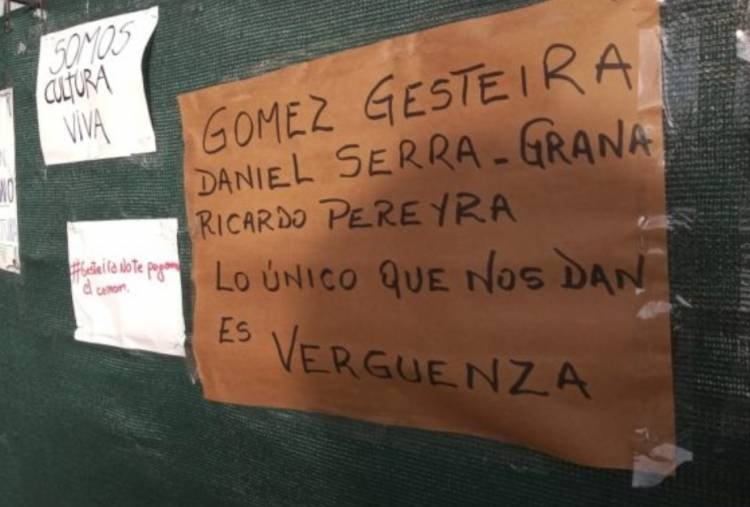 SOMOS
CULTURA
VIVA
GOMEZ GESTEIRA
DANIEL SERRA-GRANA
RICARDO PEREYRA
LO ÚNICO QUE NOS DAN
ES VERGUENZA
#Gesteira No te pagamos
el canon.